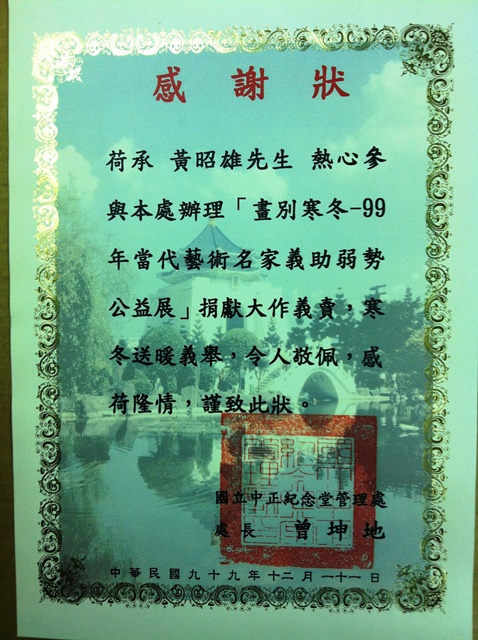 感謝狀
荷承 黃昭雄先生 熱心參
與本處辦理「畫別寒冬-99
年當代藝術名家義助弱勢
公益展」捐獻大作義賣，寒
冬送暖義舉，令人敬佩，感
荷隆情，謹致此狀。
國立中正紀念堂管理處
處長 曾坤地
中華民國九十九年十二月二十一日